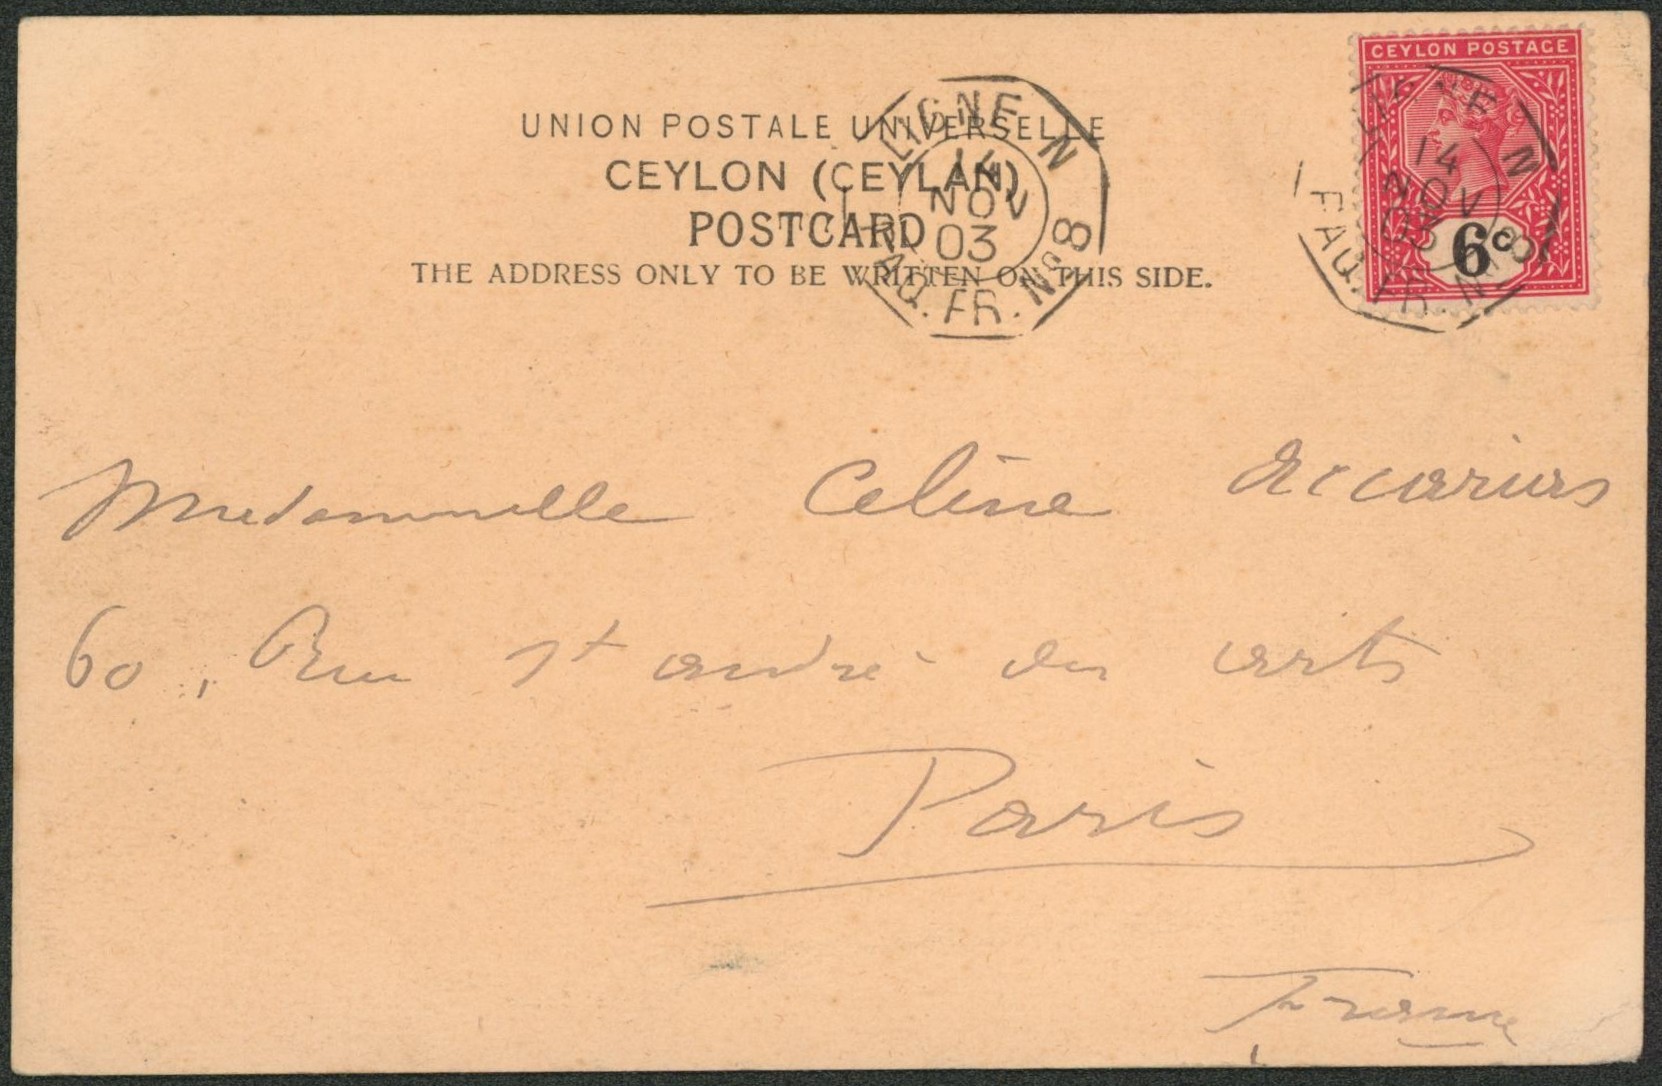 CEYLON POSTAGE
6c
UNION POSTALE UNIVERSELLE
CEYLON (CEYLAN)
POSTCARD
THE ADDRESS ONLY TO BE WRITTEN ON THIS SIDE.
LIGNE N
14
NOV
03
PAQ. FR. Nº 8
LIGNE N
14
NOV
03
PAQ. FR. Nº 8
Mademoiselle Celine Accarias
60, Rue St andré des arts
Paris
France